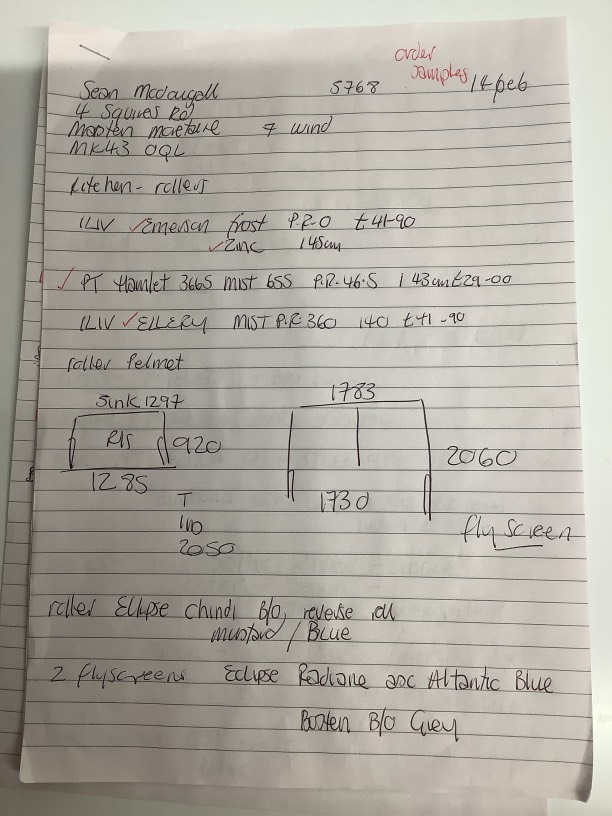 order
samples
Sean Mcdougall 5768 14 feb
4 Squires Rd
Marten moretaine 7 wind
MK43 0QL
Kitchen - rollers
ILIV ✓Emerson frost P.R.0 £41-90
✓Zinc 145cm
✓ PT Hamlet 3665 mist 655 P.R.46.5 143cm £29-00
ILIV ✓ELLERY MIST P.R 360 140 £41-90
roller Pelmet
Sink 1297
R/S 920
1285
1783
2060
1730
T
110
2050
fly screen
roller Ellipse chindi B/O, reverse roll
mustard / Blue
2 flyscreens Eclipse Radiane asc Altantic Blue
B/O Grey